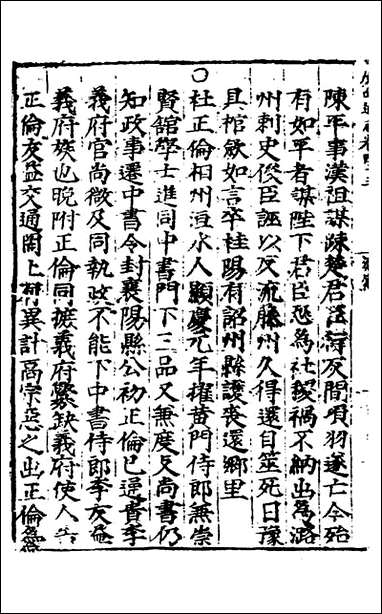 陳平事漢祖謀疎楚君臣反間項羽遂亡今殆
有如平者謀陛下君臣恐為社稷禍不納出為潞
州刺史俊臣誣以反流藤州久得還自筮死日豫
具棺斂如言卒桂陽有詔州縣護喪還鄉里
〇杜正倫相州洹水人顯慶元年擢黃門侍郎兼崇
賢舘學士進同中書門下三品又兼度支尚書仍
知政事遷中書令封襄陽縣公初正倫已通貴李
義府官尚微及同執政不能下中書侍郎李友益
義府族也晚附正倫同摭義府釁缺義府使人告
正倫友益交通罔上有異計高宗惡之出正倫為